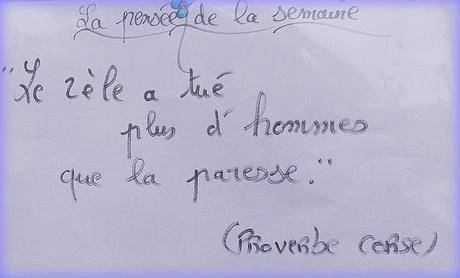 La pensée de la semaine
"Le zèle a tué
plus d'hommes
que la paresse."
(Proverbe Corse)